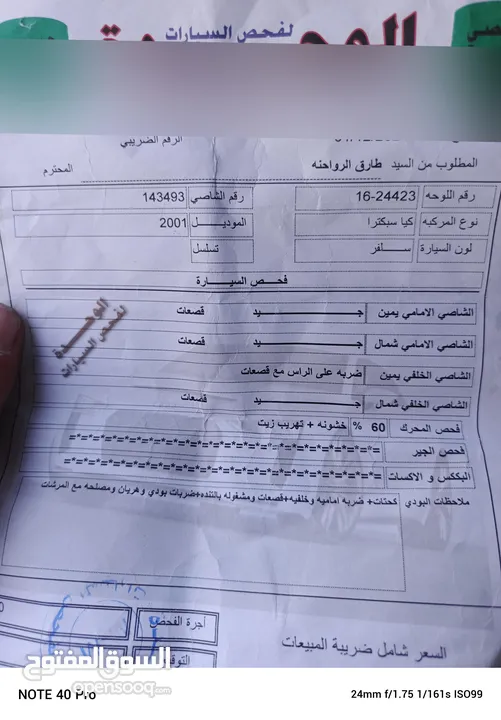 لفحص السيارات
الرقم الضريبي
المطلوب من السيد طارق الرواحنه المحترم
رقم اللوحه 16-24423 رقم الشاصي 143493
نوع المركبه كيا سبكترا الموديل 2001
لون السيارة سلفر تسلسل
فحص السيارة
الشاصي الامامي يمين جيد قصعات
الشاصي الامامي شمال جيد قصعات
الشاصي الخلفي يمين ضربه على الراس مع قصعات
الشاصي الخلفي شمال جيد قصعات
فحص المحرك 60 % خشونه + تهريب زيت
فحص الجير =*=*=*=*=*=*=*=*=*=*=*=*=*=*=*=*=*=*=*=*=*=*=
البككس و الاكسات =*=*=*=*=*=*=*=*=*=*=*=*=*=*=*=*=*=*=*=*=*=*=
ملاحظات البودي كحتات+ ضربه اماميه وخلفيه+قصعات ومشغوله بالتنده+ضربات بودي وهريان ومصلحه مع المرشات
الوحدة
لفحص السيارات
أجرة الفحص
السعر شامل ضريبة المبيعات
السوق المفتوح
opensooq.com
NOTE 40 Pro
24mm f/1.75 1/161s ISO99